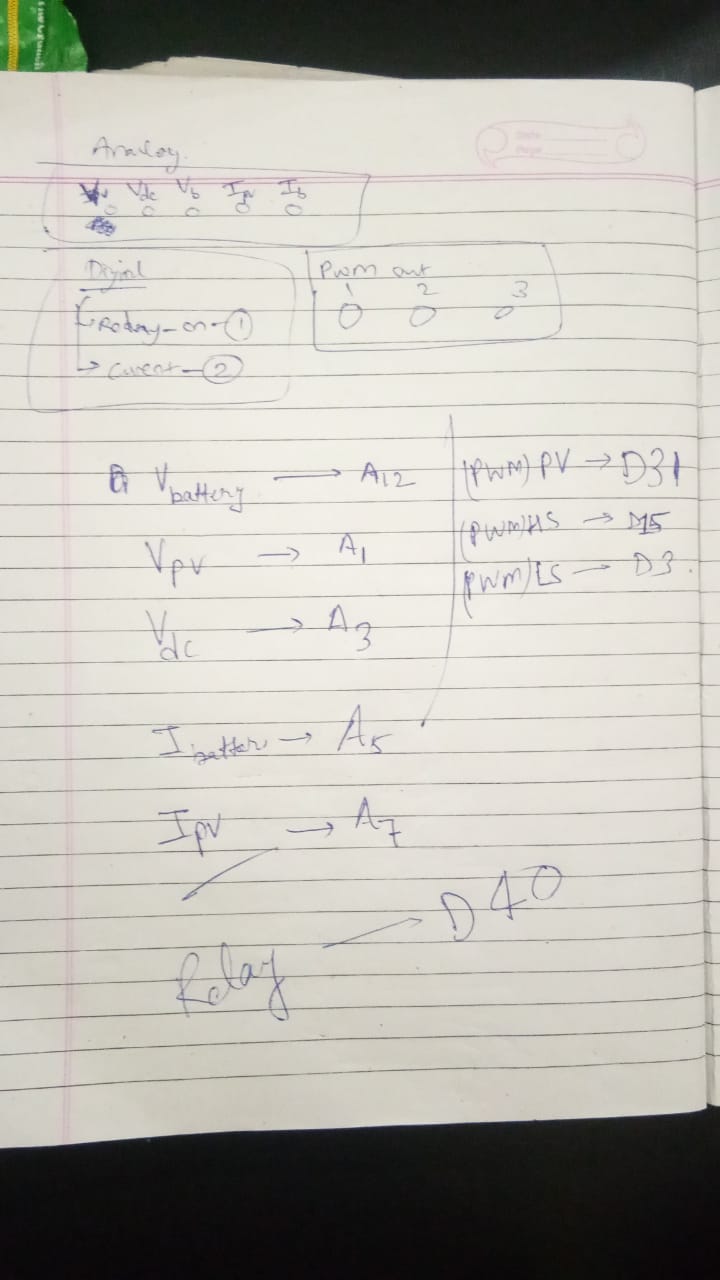 Analog
Vdc Vb Ipv Ib
Digital
Relay-on-①
Current-②
PWM out
1 2 3
Vbattery → A12
Vpv → A1
Vdc → A3
Ibattery → A5
Ipv → A7
Relay → D40
(PWM) PV → D31
(PWM) HS → D15
(PWM) LS → D3.